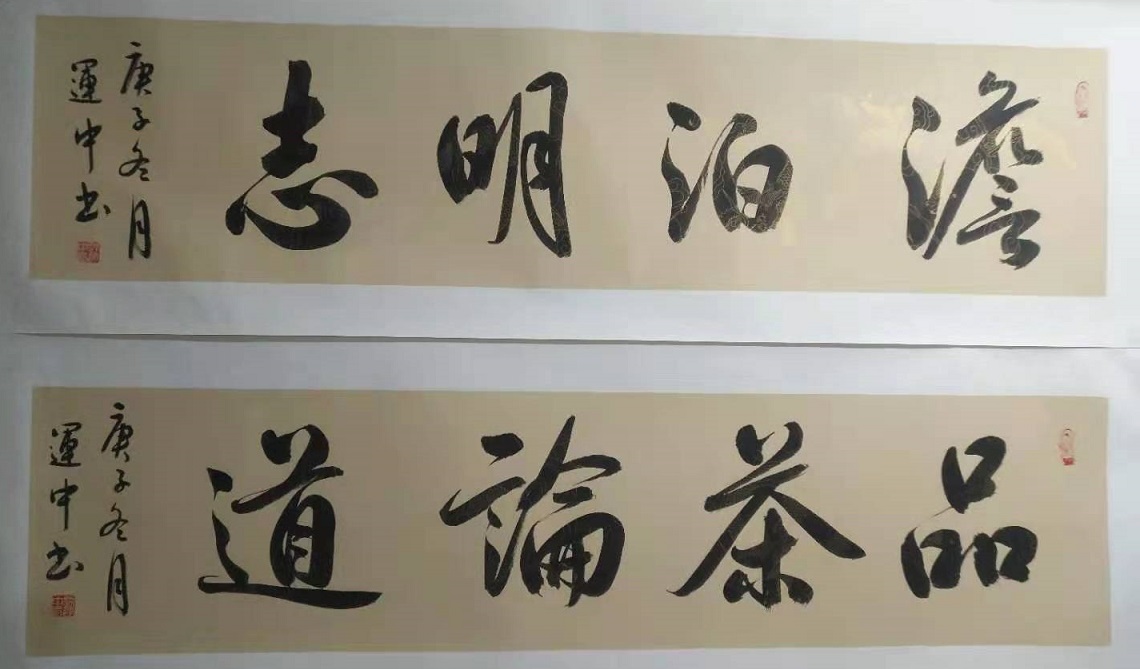 澹泊明志
庚子冬月
運中书
品茶論道
庚子冬月
運中书